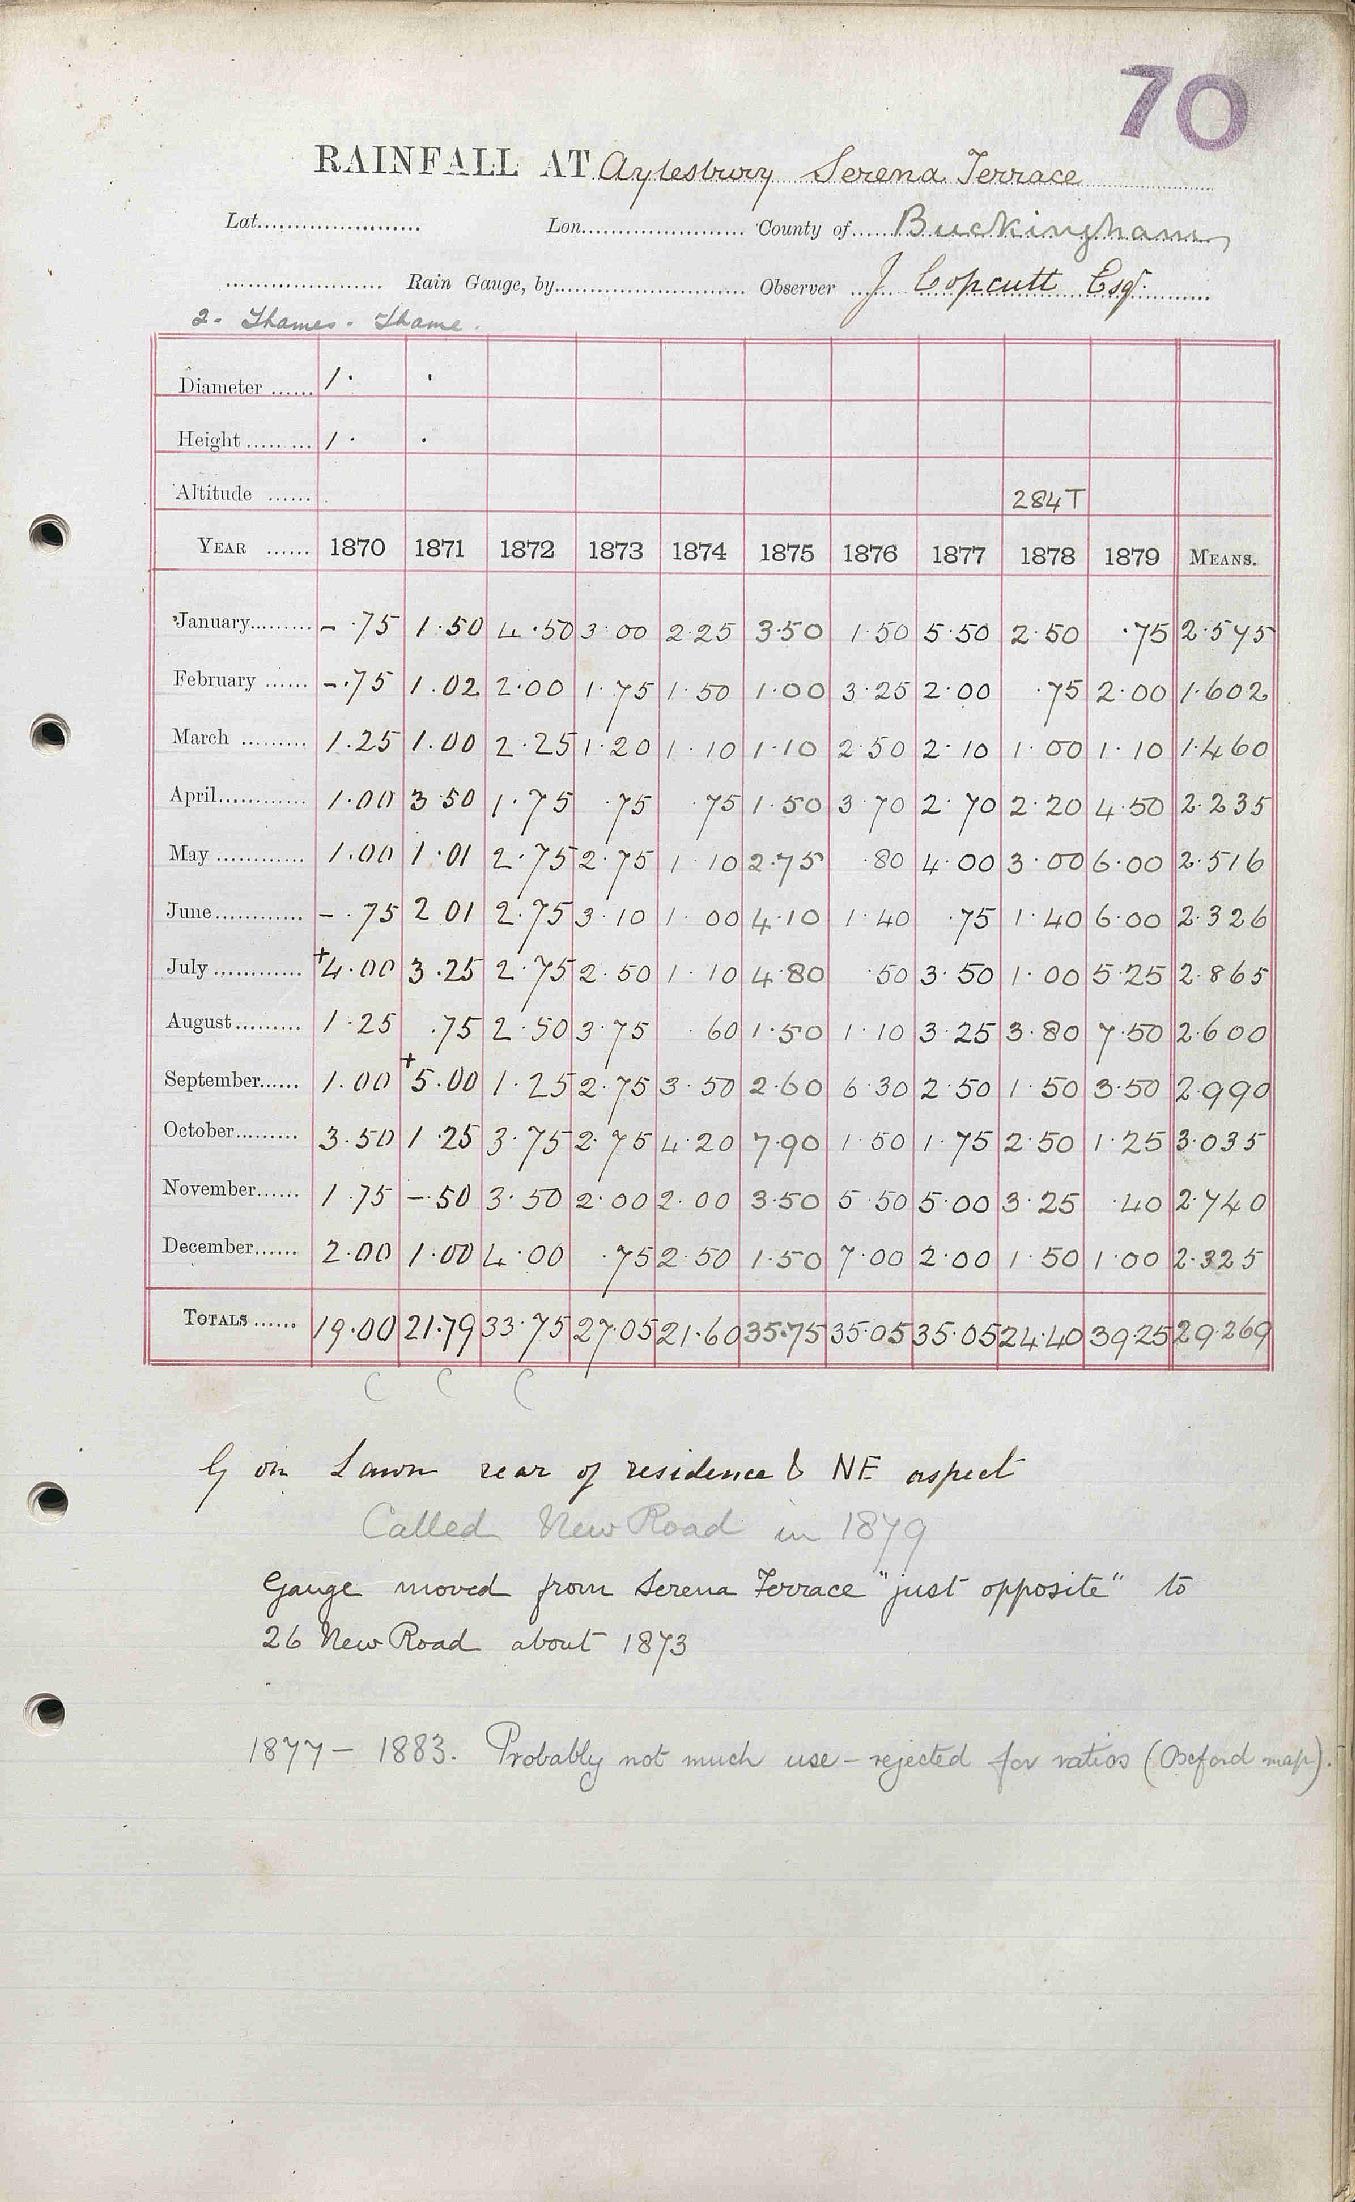 70
RAINFALL AT Aylesbury Serena Terrace
Lat. Lon. County of Buckingham
Rain Gauge, by Observer J Copcutt Esqr.
2 - Thames - Thame.
Diameter ...... 1 · ·
Height ......... 1 · ·
Altitude ...... 284T
YEAR ...... 1870 1871 1872 1873 1874 1875 1876 1877 1878 1879 MEANS.
January......... - ·75 1·50 4·50 3·00 2·25 3·50 1·50 5·50 2·50 ·75 2·575
February ...... - ·75 1·02 2·00 1·75 1·50 1·00 3·25 2·00 ·75 2·00 1·602
March ......... 1·25 1·00 2·25 1·20 1·10 1·10 2·50 2·10 1·00 1·10 1·460
April............ 1·00 3·50 1·75 ·75 ·75 1·50 3·70 2·70 2·20 4·50 2·235
May ............ 1·00 1·01 2·75 2·75 1·10 2·75 ·80 4·00 3·00 6·00 2·516
June............ - ·75 2 01 2·75 3·10 1·00 4·10 1·40 ·75 1·40 6·00 2·326
July ............ +4·00 3·25 2·75 2·50 1·10 4·80 ·50 3·50 1·00 5·25 2·865
August......... 1·25 ·75 2·50 3·75 ·60 1·50 1·10 3·25 3·80 7·50 2·600
September...... 1·00 +5·00 1·25 2·75 3·50 2·60 6·30 2·50 1·50 3·50 2·990
October......... 3·50 1·25 3·75 2·75 4·20 7·90 1·50 1·75 2·50 1·25 3·035
November...... 1·75 - ·50 3·50 2·00 2·00 3·50 5·50 5·00 3·25 ·40 2·740
December...... 2·00 1·00 4·00 ·75 2·50 1·50 7·00 2·00 1·50 1·00 2·325
TOTALS ...... 19·00 21·79 33·75 27·05 21·60 35·75 35·05 35·05 24·40 39·25 29·269
C C C
G on Lawn rear of residence & NE aspect
Called New Road in 1879
Gauge moved from Serena Terrace "just opposite" to
26 New Road about 1873
1877 - 1883. Probably not much use - rejected for ratios (Oxford map).